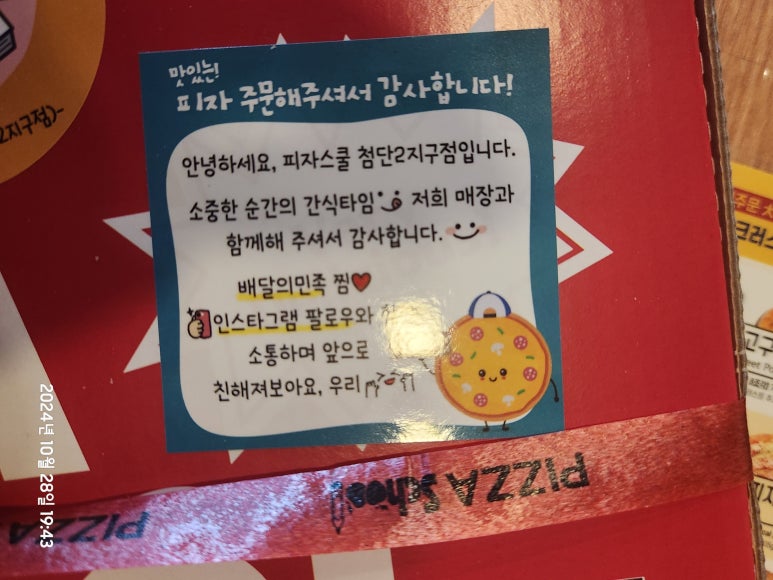 2지구점)-
맛있는!
피자 주문해주셔서 감사합니다!
안녕하세요, 피자스쿨 첨단2지구점입니다.
소중한 순간의 간식타임 저희 매장과
함께해 주셔서 감사합니다.
배달의민족 찜♥
인스타그램 팔로우와
소통하며 앞으로
친해져보아요, 우리
PIZZA School
PIZZA
2024년 10월 28일 19:43
주문
크러스
고구